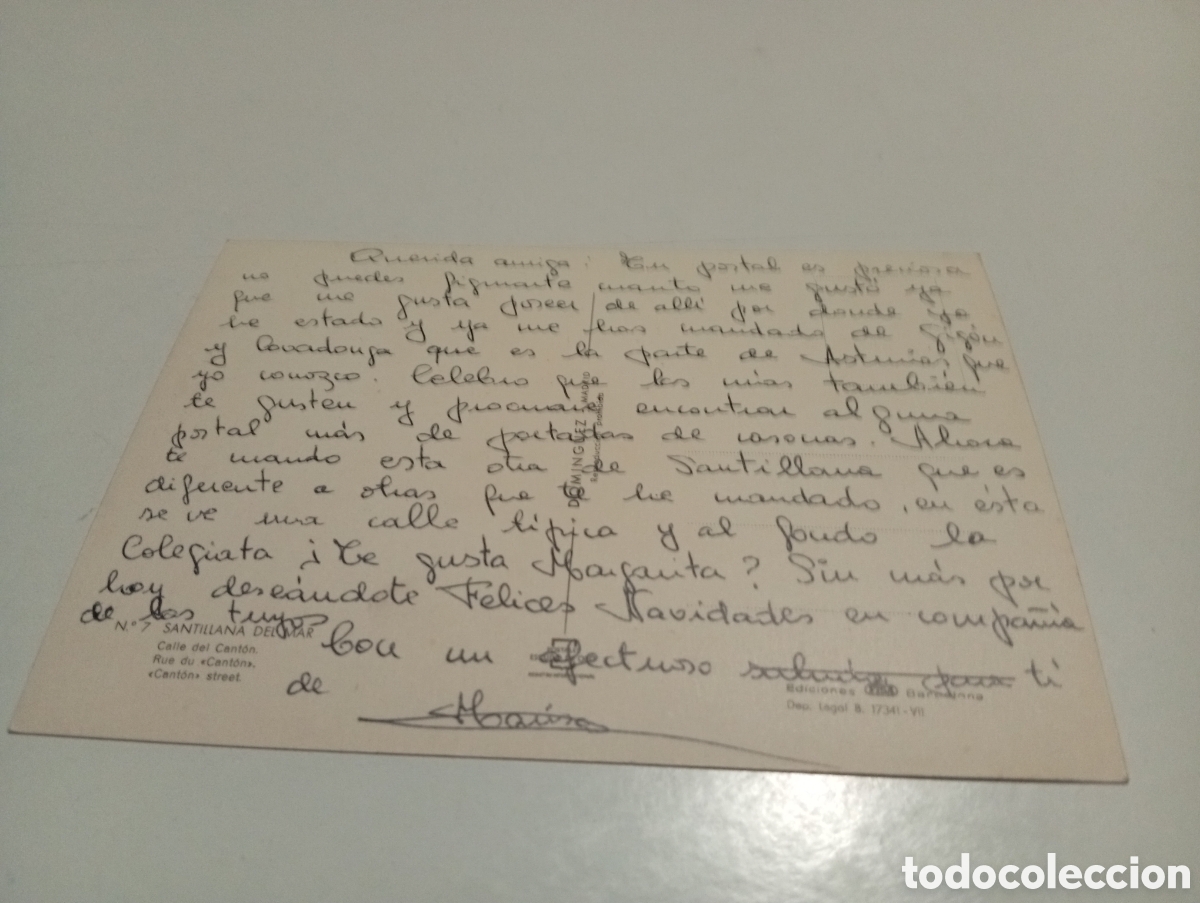 Querida amiga: Tu postal es preciosa
no puedes figurarte cuanto me gustó ya
que me gusta poseer de allí por donde yo
he estado y ya me has mandado de Gigón
y Covadonga que es la parte de Asturias que
yo conozco. Celebro que las mias también
te gusten y procuraré encontrar alguna
postal más de portadas de casonas. Ahora
te mando esta otra de Santillana que es
diferente a otras que te he mandado, en ésta
se ve una calle típica y al fondo la
Colegiata ¿Te gusta Margarita? Sin más por
hoy deseándote Felices Navidades en compañia
de los tuyos
Con un afectuoso saludo para ti
de
N.º 7 SANTILLANA DEL MAR
Calle del Cantón.
Rue du «Cantón».
«Cantón» street.
DOMINGUEZ MADRID
Ediciones Barcelona
Dep. Legal B. 17341-VII
todocoleccion